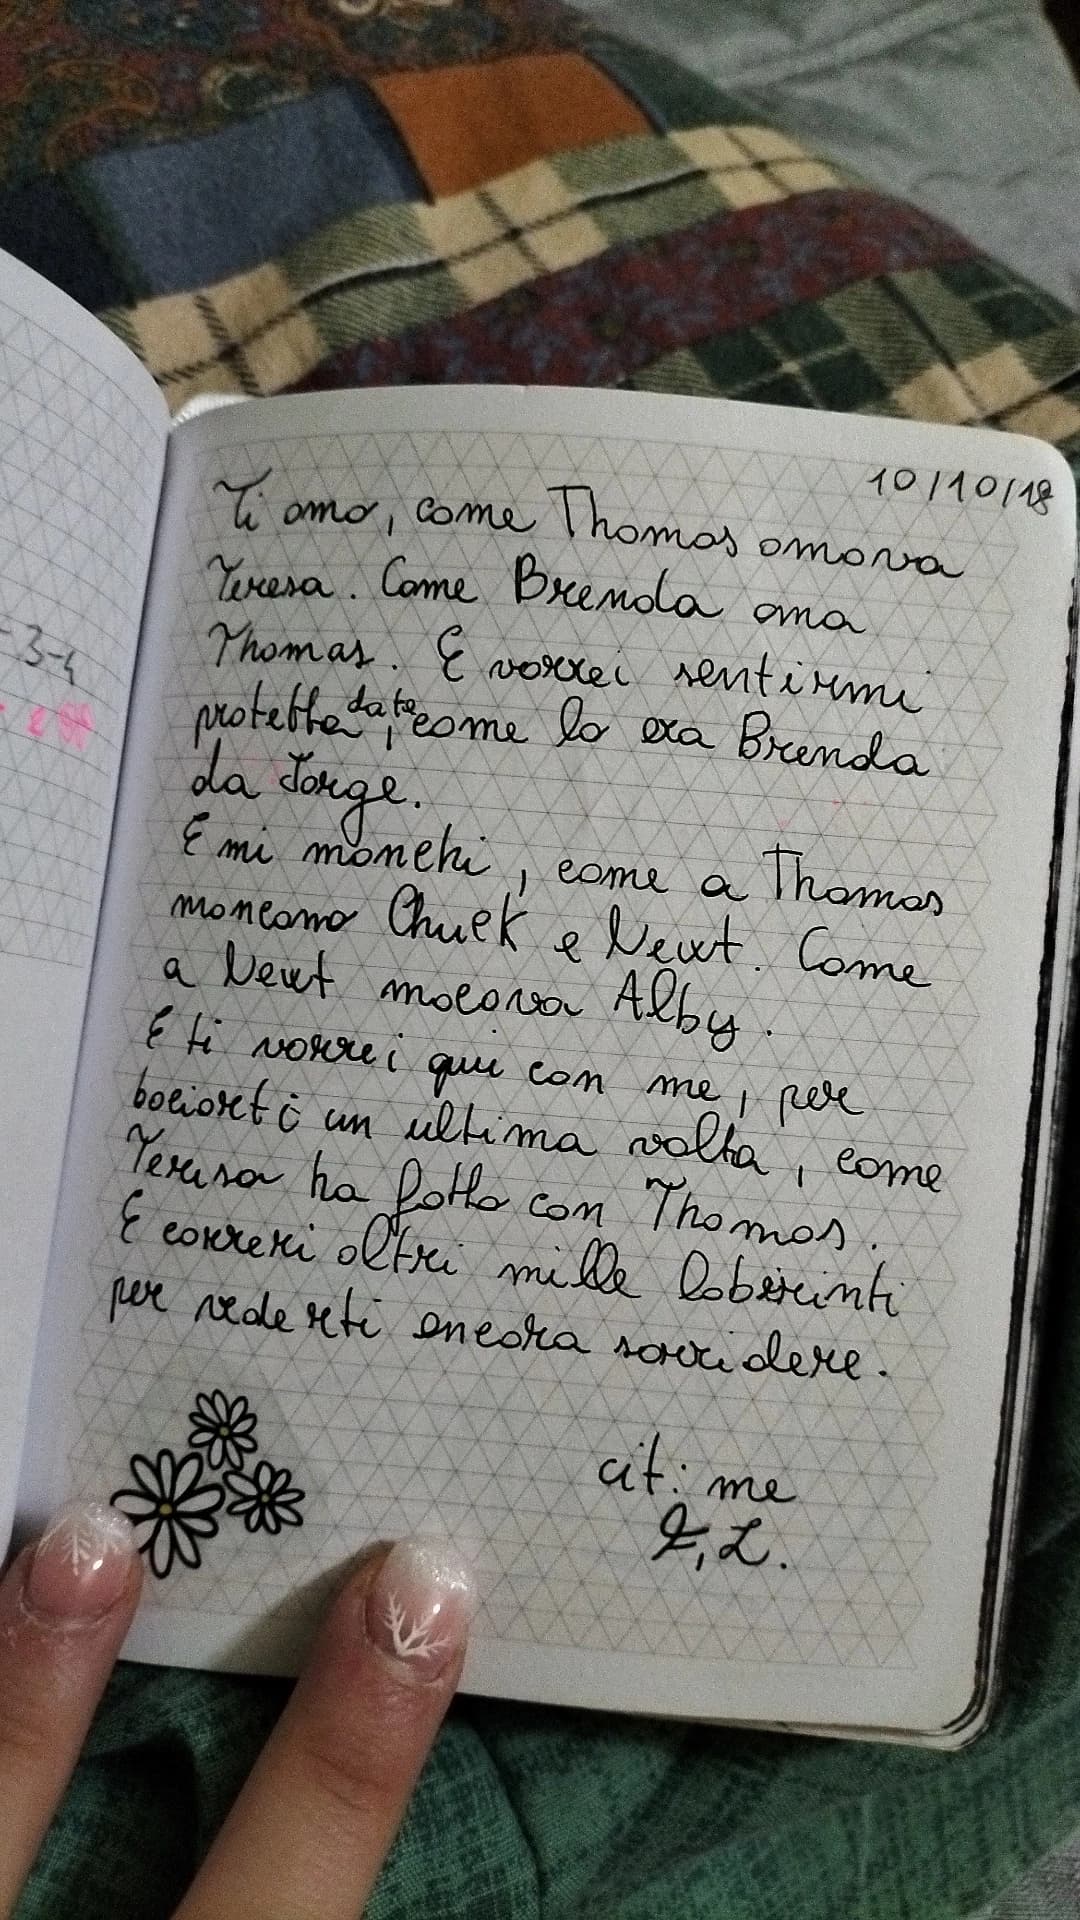 10/10/18
Ti amo, come Thomas amava
Teresa. Come Brenda ama
Thomas. E vorrei sentirmi
protetta da te, come lo era Brenda
da Jorge.
E mi manchi, come a Thomas
mancano Chuck e Newt. Come
a Newt macava Alby.
E ti vorrei qui con me, per
baciarti un ultima volta, come
Teresa ha fatto con Thomas.
E correrei altri mille labirinti
per vederti ancora sorridere.
cit: me
L.
- 3-4